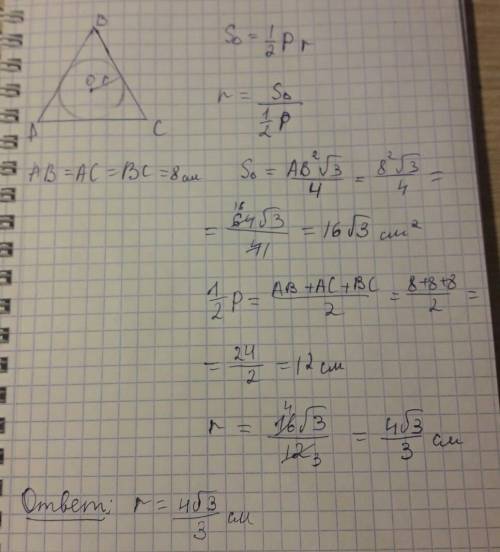 S₀ = 1/2 P r
B
O r
A C
r = S₀ / (1/2 P)
AB = AC = BC = 8 см
S₀ = AB²√3 / 4 = 8²√3 / 4 =
= 64√3 / 4 = 16√3 см²
1/2 P = (AB + AC + BC) / 2 = (8+8+8) / 2 =
= 24 / 2 = 12 см
r = 16√3 / 12 = 4√3 / 3 см
Ответ: r = 4√3 / 3 см